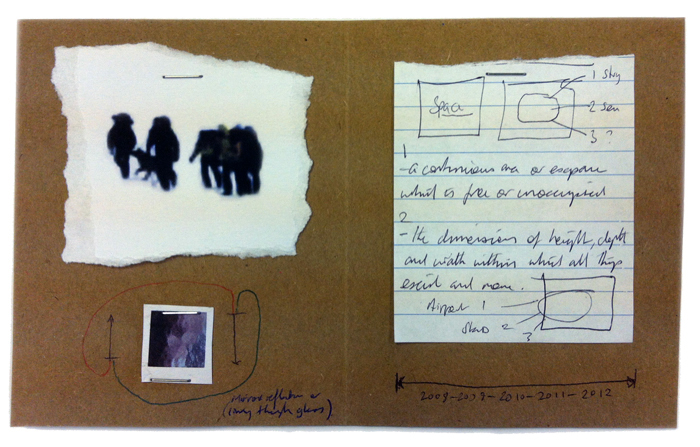 Space
1
2
3
1
- a continuous area or expanse
which is free or unoccupied
2
- the dimensions of height, depth
and width within which all things
exist and move.
1
2
3
(going through glass)
2009-2009-2010-2011-2012